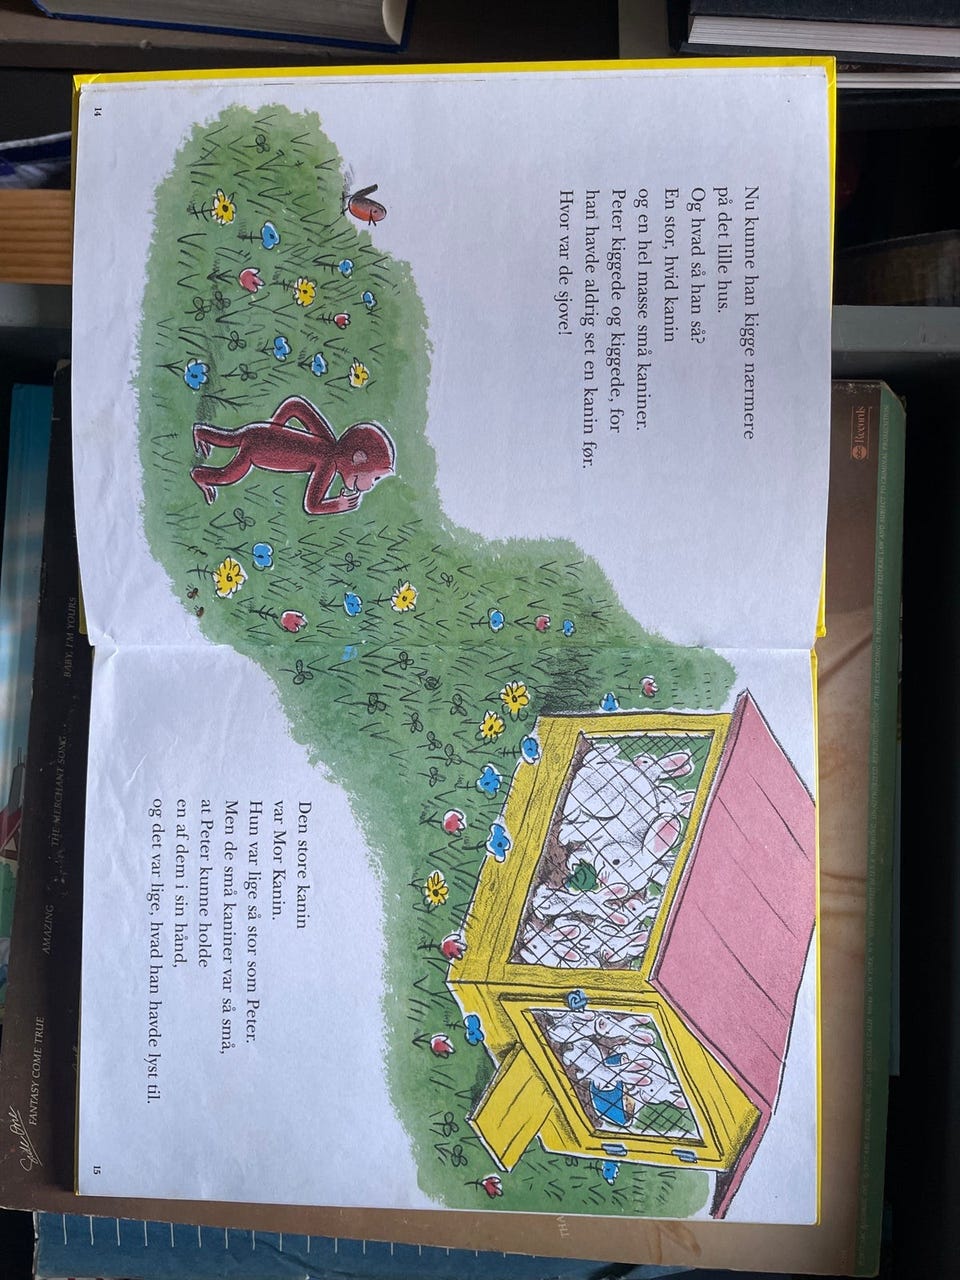 Nu kunne han kigge nærmere
på det lille hus.
Og hvad så han så?
En stor, hvid kanin
og en hel masse små kaniner.
Peter kiggede og kiggede, for
han havde aldrig set en kanin før.
Hvor var de sjove!
14
Den store kanin
var Mor Kanin.
Hun var lige så stor som Peter.
Men de små kaniner var så små,
at Peter kunne holde
en af dem i sin hånd,
og det var lige, hvad han havde lyst til.
15
BABY, I'M YOURS
THE MERCHANT SONG
AMAZING
FANTASY COME TRUE